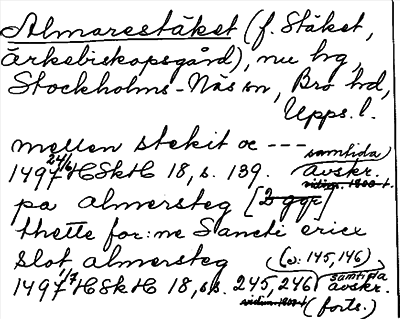 Almarestäket (f. Stäket,
Ärkebiskopsgård), nu hg,
Stockholms-Näs sn, Bro hd,
Upps. l.
mellen stekit oc ---
samtida
1497 24/6 HSkH 18, s. 139. avskr.
pa almersteg [2 ggr]
thette for:ne Sancti erics
slot almersteg (s: 145, 146)
samtida
1497 1/7 HSkH 18, ss. 245, 246 avskr.
(forts.)